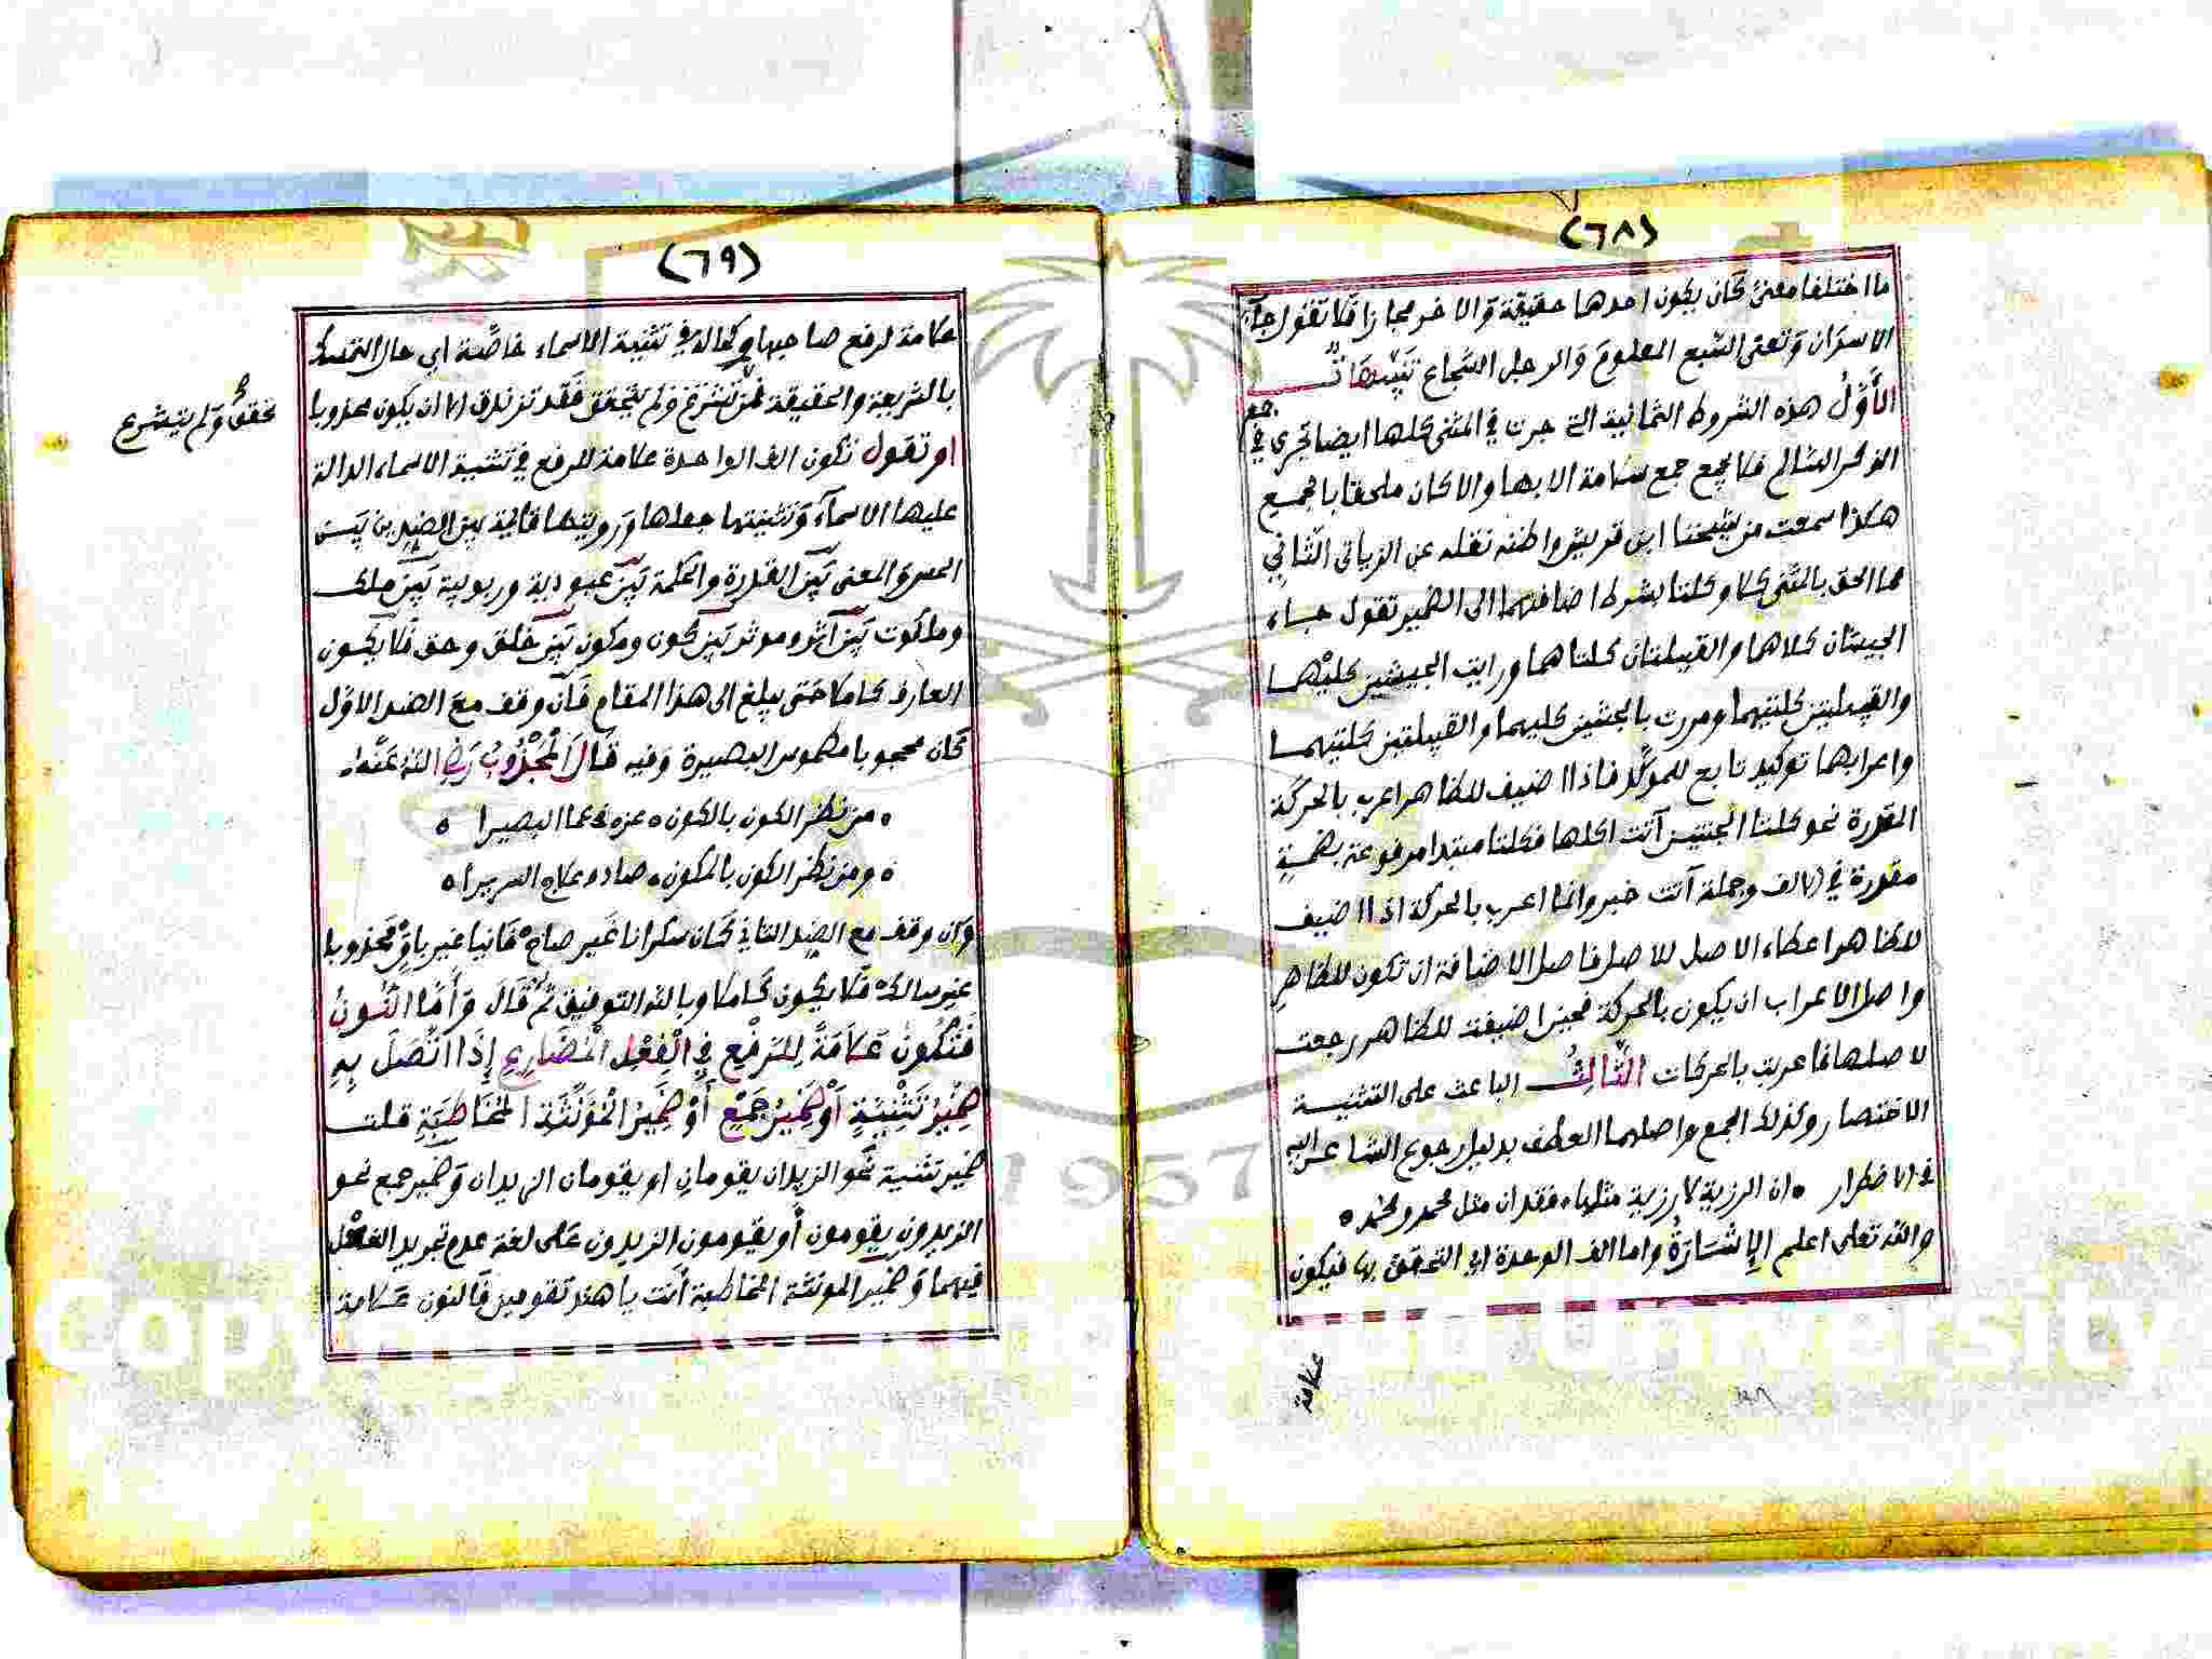 (٦٨)
ما اختلفا معنى كان يكون احدهما حقيقة والاخر مجازا فلا تقول جاء
الاسدان وتعنى السبع المعلوم والرجل الشجاع تنبيهات
الأول هذه الشروط الثمانية التي جرت في المثنى كلها ايضا تجري في جمع
المذكر السالم فلا يجمع جمع سلامة الا بها والا كان ملحقا بالجمع
هكذا سمعت من شيخنا ابن قريش واظنه نقله عن الزياتى الثاني
مما الحق بالمثنى كلا وكلتا بشرط اضافتهما الى الضمير تقول جاء
الجيشان كلاهما والقبيلتان كلتاهما ورايت الجيشين كليهما
والقبيلتين كلتيهما ومررت بالجيشين كليهما والقبيلتين كلتيهما
واعرابهما توكيد تابع للموكد فاذا اضيف للظاهر اعرب بالحركة
المقدرة نحو كلتا الجنتين آتت اكلها فكلتا مبتدا مرفوعة بضمة
مقدرة في الالف وجملة آتت خبر وانما اعرب بالحركة اذا اضيف
للظاهر اعطاء الاصل للاصل فاصل الاضافة ان تكون للظاهر
واصل الاعراب ان يكون بالحركة فحين اضيفت للظاهر رجعت
لاصلها فاعربت بالحركات الثالث الباعث على التثنية
الاختصار وكذلك الجمع واصلهما العطف بدليل رجوع الشاعر اليه
في الاضطرار ه ان الرزية لا رزية مثلها ه فقدان مثل محمد ومحمد ه
والله تعلى اعلم الإشارة واما الف الوحدة اي التحقق بها فيكون
علامة
(٦٩)
علامة لرفع صاحبها وكماله في تثنية الاسماء خاصة اي حال التمسك
بالشريعة والحقيقة فمن تشرع ولم يتحقق فقد تزندق الا ان يكون مجذوبا
تحقق ولم يتشرع
او تقول تكون الف الواحدة علامة للرفع في تثنية الاسماء الدالة
عليها الاسماء وتثنيتها جعلها ورويتها قائمة بين الضدين بين
الحس والمعنى بين القدرة والحكمة بين عبودية وربوبية بين ملك
وملكوت بين اثر وموثر بين كون ومكون بين خلق وحق فلا يكون
العارف كاملا حتى يبلغ الى هذا المقام فان وقف مع الضد الاول
كان محجوبا مطموس البصيرة وفيه قال المجذوب رضي الله عنه
ه من نظر الكون بالكون ه عزه في عما البصيرا ه
ه ومن نظر الكون بالمكون ه صادف علاج السريرا ه
وان وقف مع الضد الثاني كان سكرانا غير صاح فانيا غير باق مجذوبا
غير سالك فلا يكون كاملا وبالله التوفيق ثم قال وأما النون
فتكون علامة للرفع في الفعل المضارع إذا اتصل به
ضمير تثنية أو ضمير جمع أو ضمير المؤنثة المخاطبة قلت
ضمير تثنية نحو الزيدان يقومان او يقومان الزيدان وضمير جمع نحو
الزيدون يقومون أو يقومون الزيدون على لغة عدم تجريد الفعل
فيهما وضمير المونثة المخاطبة أنت يا هند تقومين فالنون علامة
1957